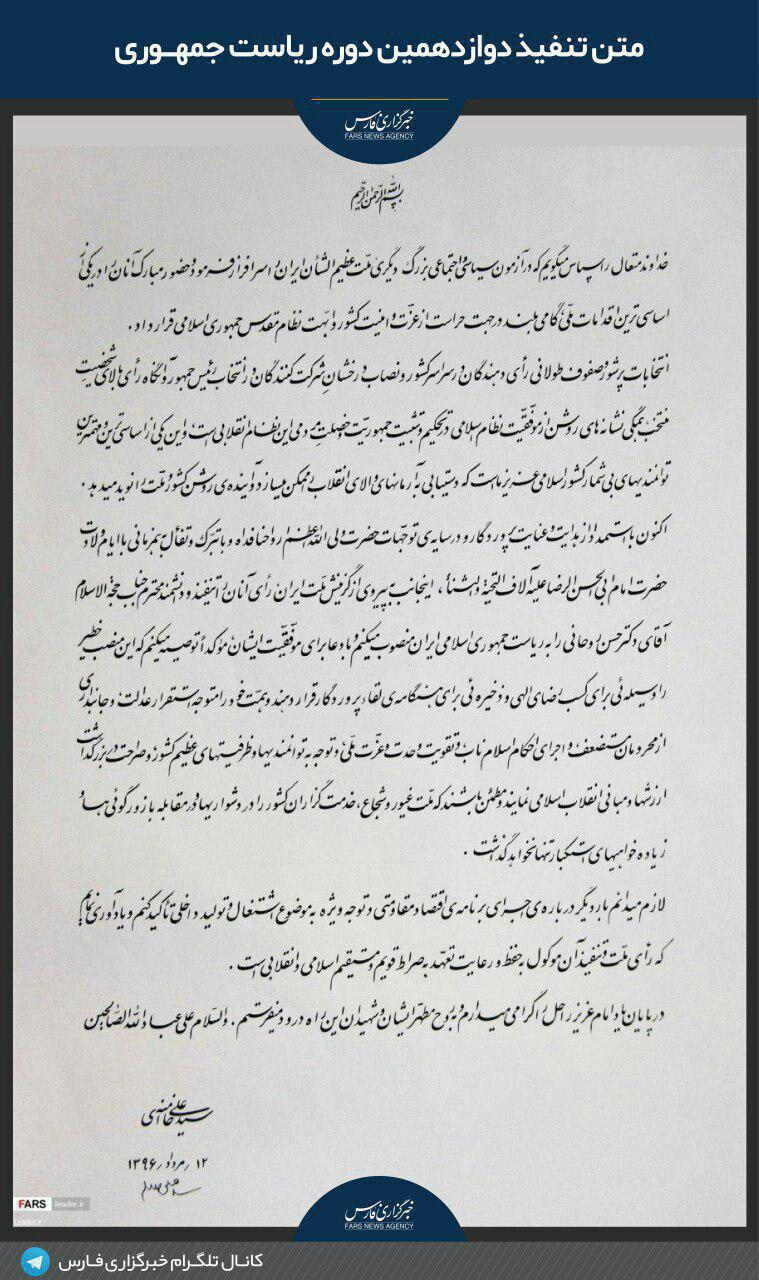 متن تنفیذ دوازدهمین دوره ریاست جمهوری
خبرگزاری فارس
FARS NEWS AGENCY
بسم الله الرحمن الرحیم
خداوند متعال را سپاس میگویم که در آزمون سیاسی و اجتماعی بزرگ دیگری ملت عظیم الشأن ایران را سرافراز فرمود و حضور مبارک آنان را در یکی از
اساسی ترین اقدامات ملّی گامی بلند در جهت حراست از عزّت و امنیت کشور و ابهت نظام مقدس جمهوری اسلامی قرار داد.
انتخابات پرشور و صفوف طولانی رأی دهندگان در سراسر کشور و نصاب درخشان شرکت کنندگان در انتخاب رئیس جمهور و آنگاه رأی بالای شخصیت
منتخب همگی نشانه های روشن از موفّقیّت نظام اسلامی در تحکیم و تثبیت جمهوریّت و خصلت مردمی این نظام انقلابی است، و این یکی از اساسی ترین و مهمترین
توانمندیهای بی شمار کشور اسلامی عزیز ما است که دستیابی به آرمانهای والای انقلاب را ممکن میسازد و آینده ی روشن کشور و ملّت را نوید میدهد.
اکنون با استمداد از هدایت و عنایت پروردگار و در سایه ی توجّهات حضرت ولی الله الاعظم ارواحنا فداه و با تبرّک و تفأل به همزمانی با ایام ولادت
حضرت امام ابی الحسن الرضا علیه آلاف التحیة و الثناء، اینجانب به پیروی از گزینش ملّت ایران، رأی آنان را تنفیذ و دانشمند محترم جناب حجة الاسلام
آقای دکتر حسن روحانی را به ریاست جمهوری اسلامی ایران منصوب میکنم و با دعا برای موفّقیّت ایشان مؤکداً توصیه میکنم که این منصب خطیر
را وسیله ئی برای کسب رضای الهی و ذخیره ئی برای هنگامه ی لقاء پروردگار قرار دهند و همّت خود را متوجه استقرار عدالت و جانبداری
از محرومان و مستضعف و اجرای احکام اسلام ناب و تقویت وحدت و عزّت ملّی و توجه به توانمندیها و ظرفیتهای عظیم کشور و صراحت در بزرگداشت
ارزشها و مبانی انقلاب اسلامی نمایند و مطمئن باشند که ملّت غیور و شجاع، خدمت گزاران کشور را در دشواریها و در مقابله با زورگوئی ها و
زیاده خواهیهای استکبار تنها نخواهد گذاشت.
لازم میدانم بار دیگر درباره ی اجرای برنامه ی اقتصاد مقاومتی و توجه ویژه به موضوع اشتغال و تولید داخلی تأکید کنم و یادآوری نمایم
که رأی ملّت و تنفیذ آن موکول به حفظ و رعایت تعهّد به صراط قویم و مستقیم اسلامی و انقلابی است.
در پایان یاد امام عزیز راحل را گرامی میدارم و به روح مطهّر ایشان و شهیدان این راه درود میفرستم. والسّلام علی عباد الله الصّالحین
سیدعلی خامنه ای
۱۲ مرداد ۱۳۹۶
FARS
leader.ir
Leader.ir
خبرگزاری فارس
FARS NEWS AGENCY
کانال تلگرام خبرگزاری فارس